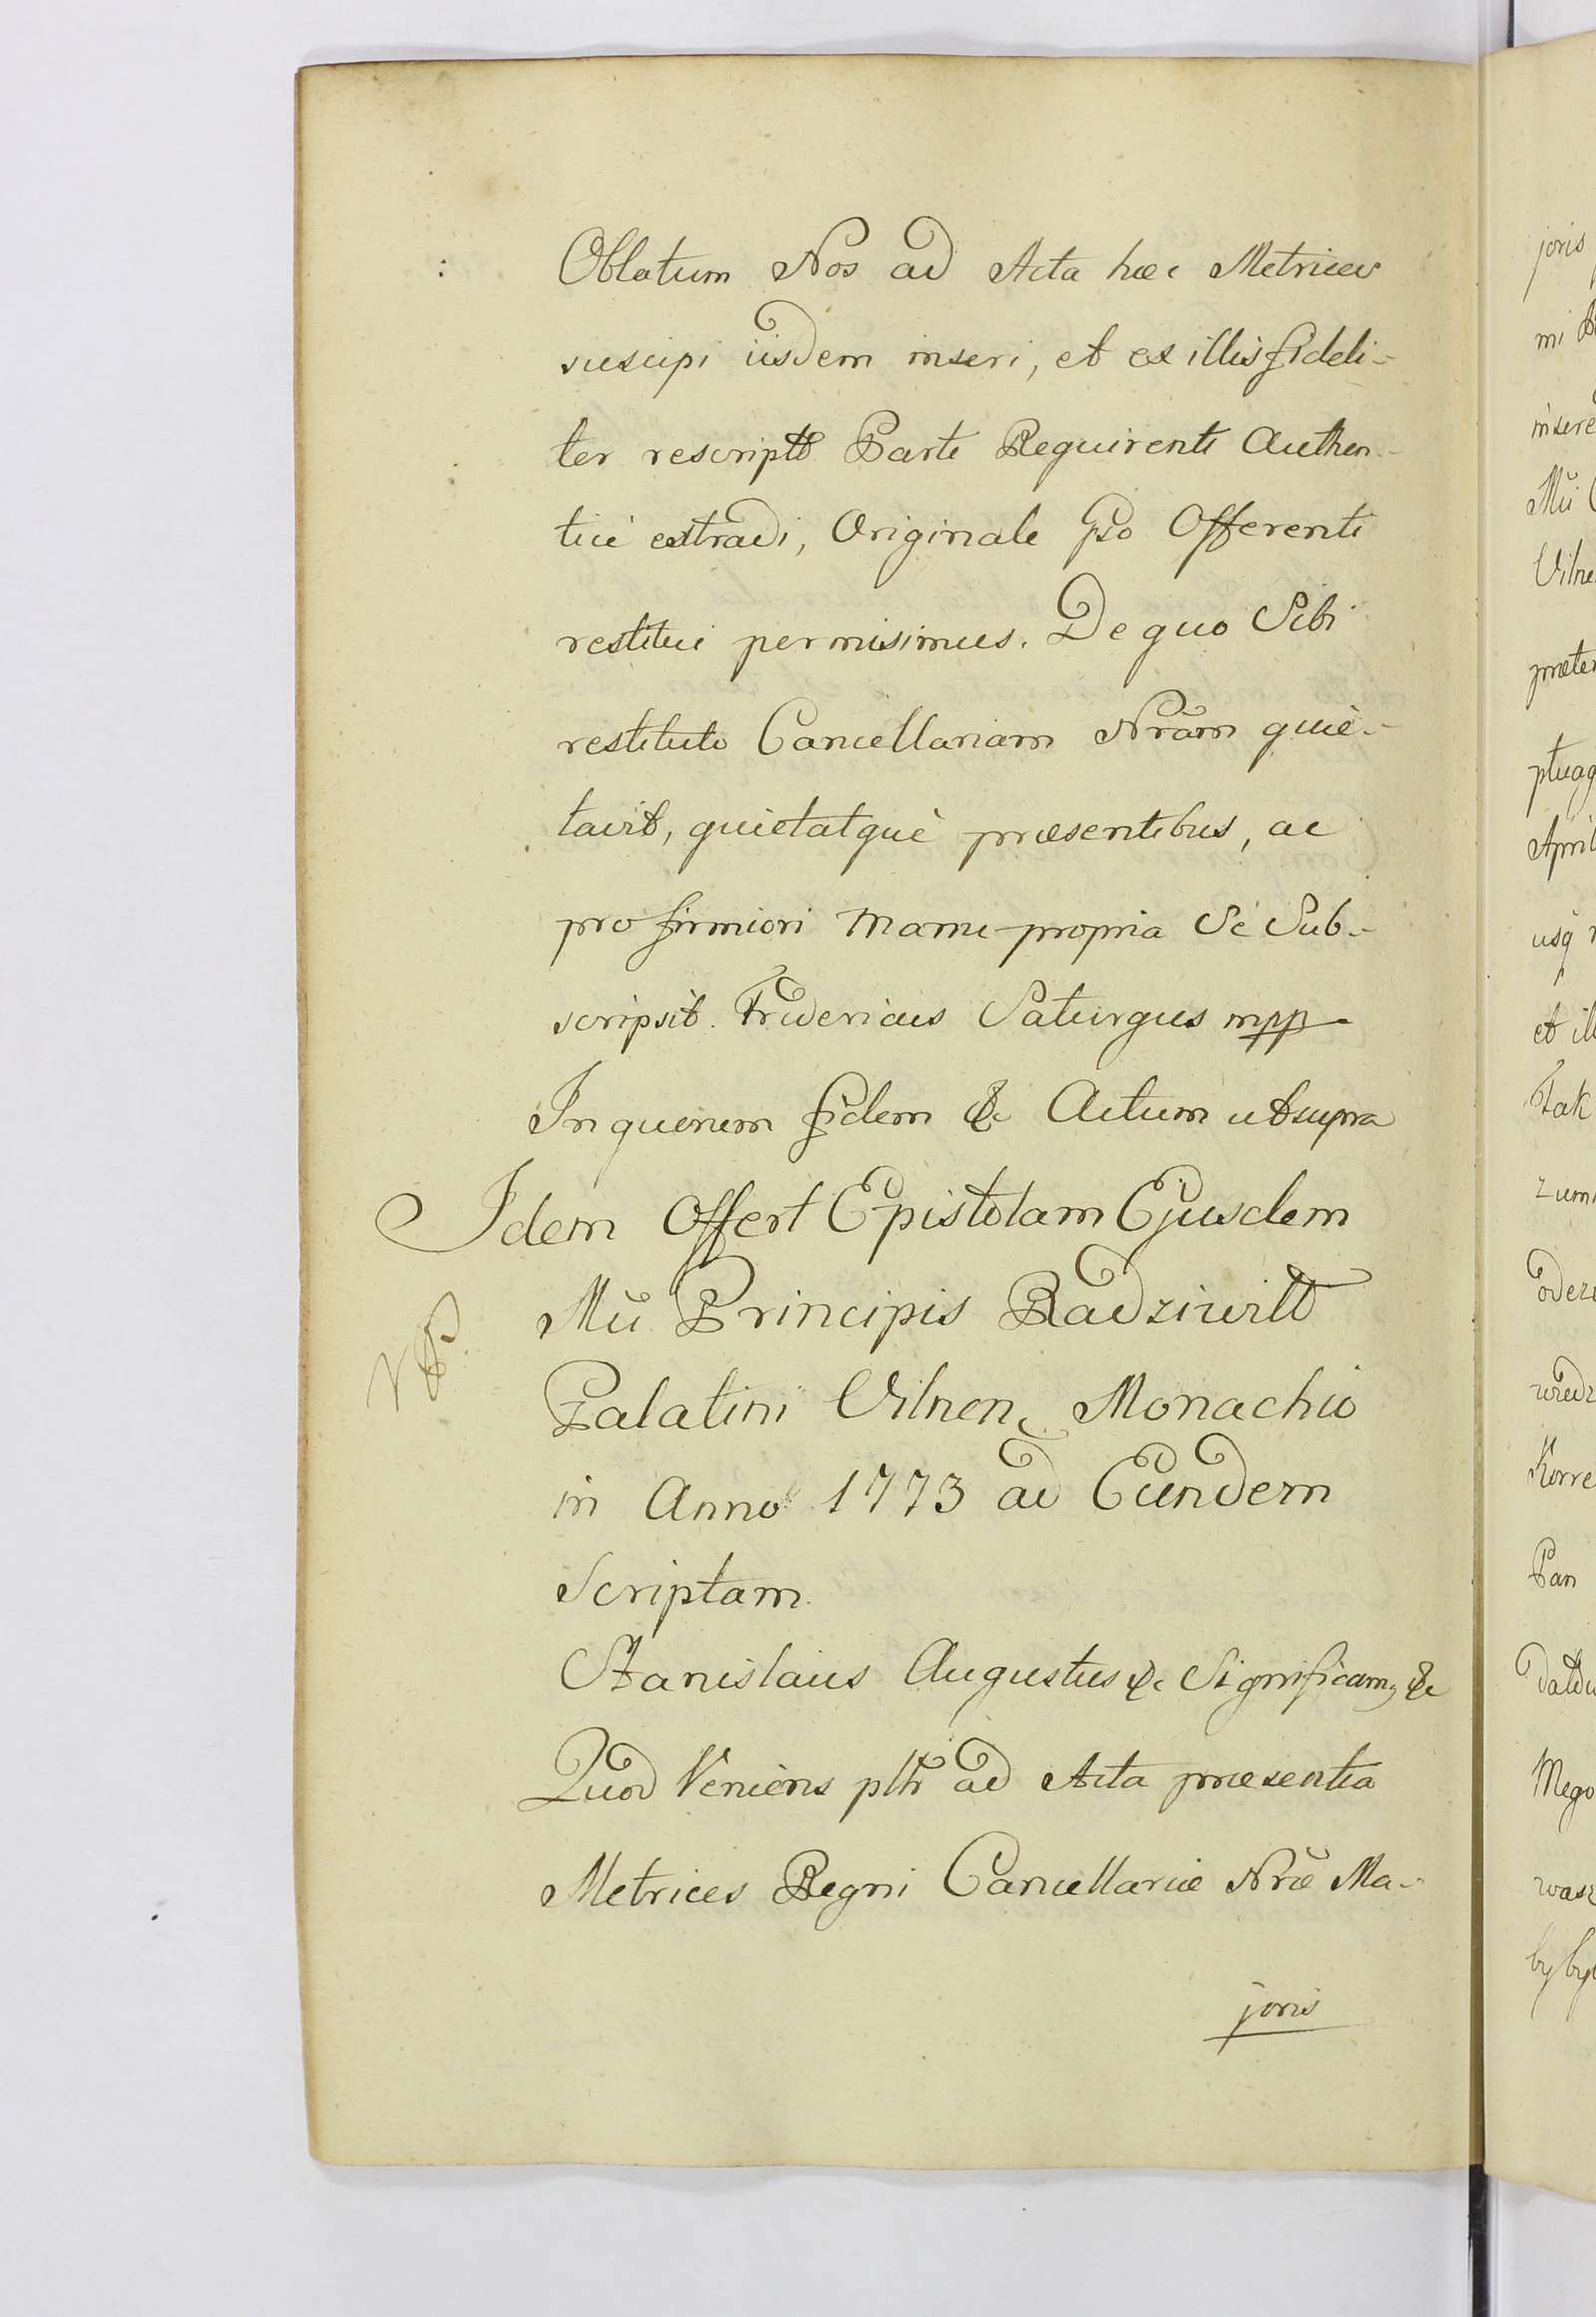 Oblatum Nos ad Acta hæc Metrices
suscipi iisdem inseri, et ex illis fideli-
ter rescriptt Parti Requirenti Authen-
ticè extradi, Originale Pso Offerenti
restitui permisimus. De quo Sibi
restituto Cancellariam Nrãm quiè-
tavit, quietatquè præsentibus, ac
pro firmiori Manu propria Sè Sub-
scripsit. Fridericus Saturgus mpp
In quorum fidem &c Actum ut supra
Idem Offert Epistolam Ejusdem
Mũ Principis Radziwiłł
Palatini Vilnen. Monachio
in Anno 1773 ad Eundem
Scriptam.
Stanislaus Augustus &c Significam, &c
Quod Veniens pltr ad Acta præsentia
Metrices Regni Cancellariæ Nræ Ma-
joris
joris
mi
insere
Mũ
Vilne
præter
ptuag
April
usq
et ill
Tak
zum
odeze
Korre
Pan
Mego
wasz